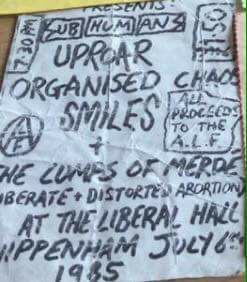 PRESENTS:
7:30 PM SUB HUMANS £1.50
UPROAR
ORGANISED CHAOS
SMILES
ALL
PROCEEDS
TO THE
A.L.F.
+
THE LUMPS OF MERDE
LIBERATE + DISTORTED ABORTION
AT THE LIBERAL HALL
HIPPENHAM JULY 6th
1985